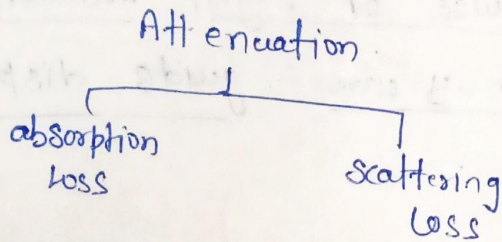 Attenuation
absorption
Loss
scattering
Loss